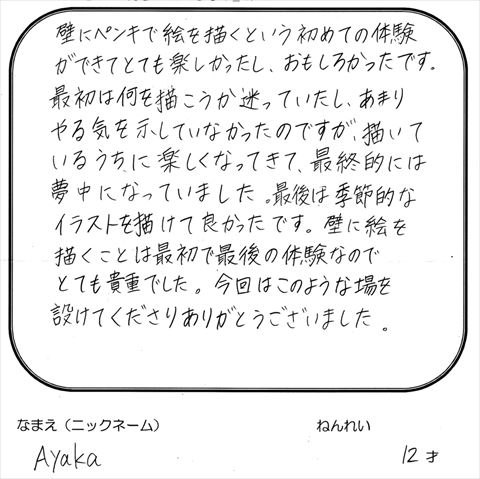 壁にペンキで絵を描くという初めての体験
ができてとても楽しかったし、おもしろかったです。
最初は何を描こうか迷っていたし、あまり
やる気を示していなかったのですが、描いて
いるうちに楽しくなってきて、最終的には
夢中になっていました。最後は季節的な
イラストを描けて良かったです。壁に絵を
描くことは最初で最後の体験なので
とても貴重でした。今回はこのような場を
設けてくださりありがとうございました。
なまえ（ニックネーム） ねんれい
Ayaka 12才